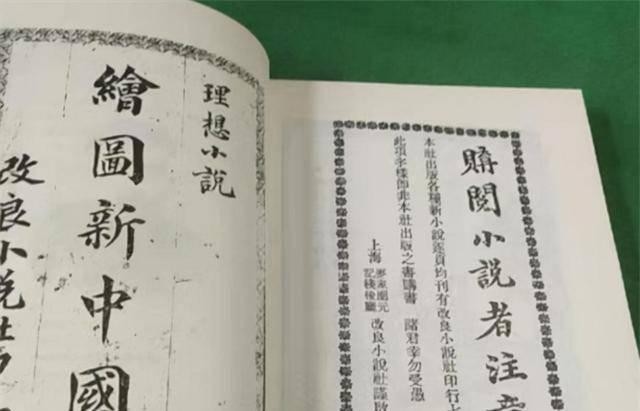 理想小説
繪圖新中國
改良小説社
購閱小説者注意
本社出版各種新小說逐頁均刊有改良小說社印行上
此項字樣即非本社出版之書購書 諸君幸勿受愚
上海
麥家圈元
記棧後廳
改良小說社謹啟